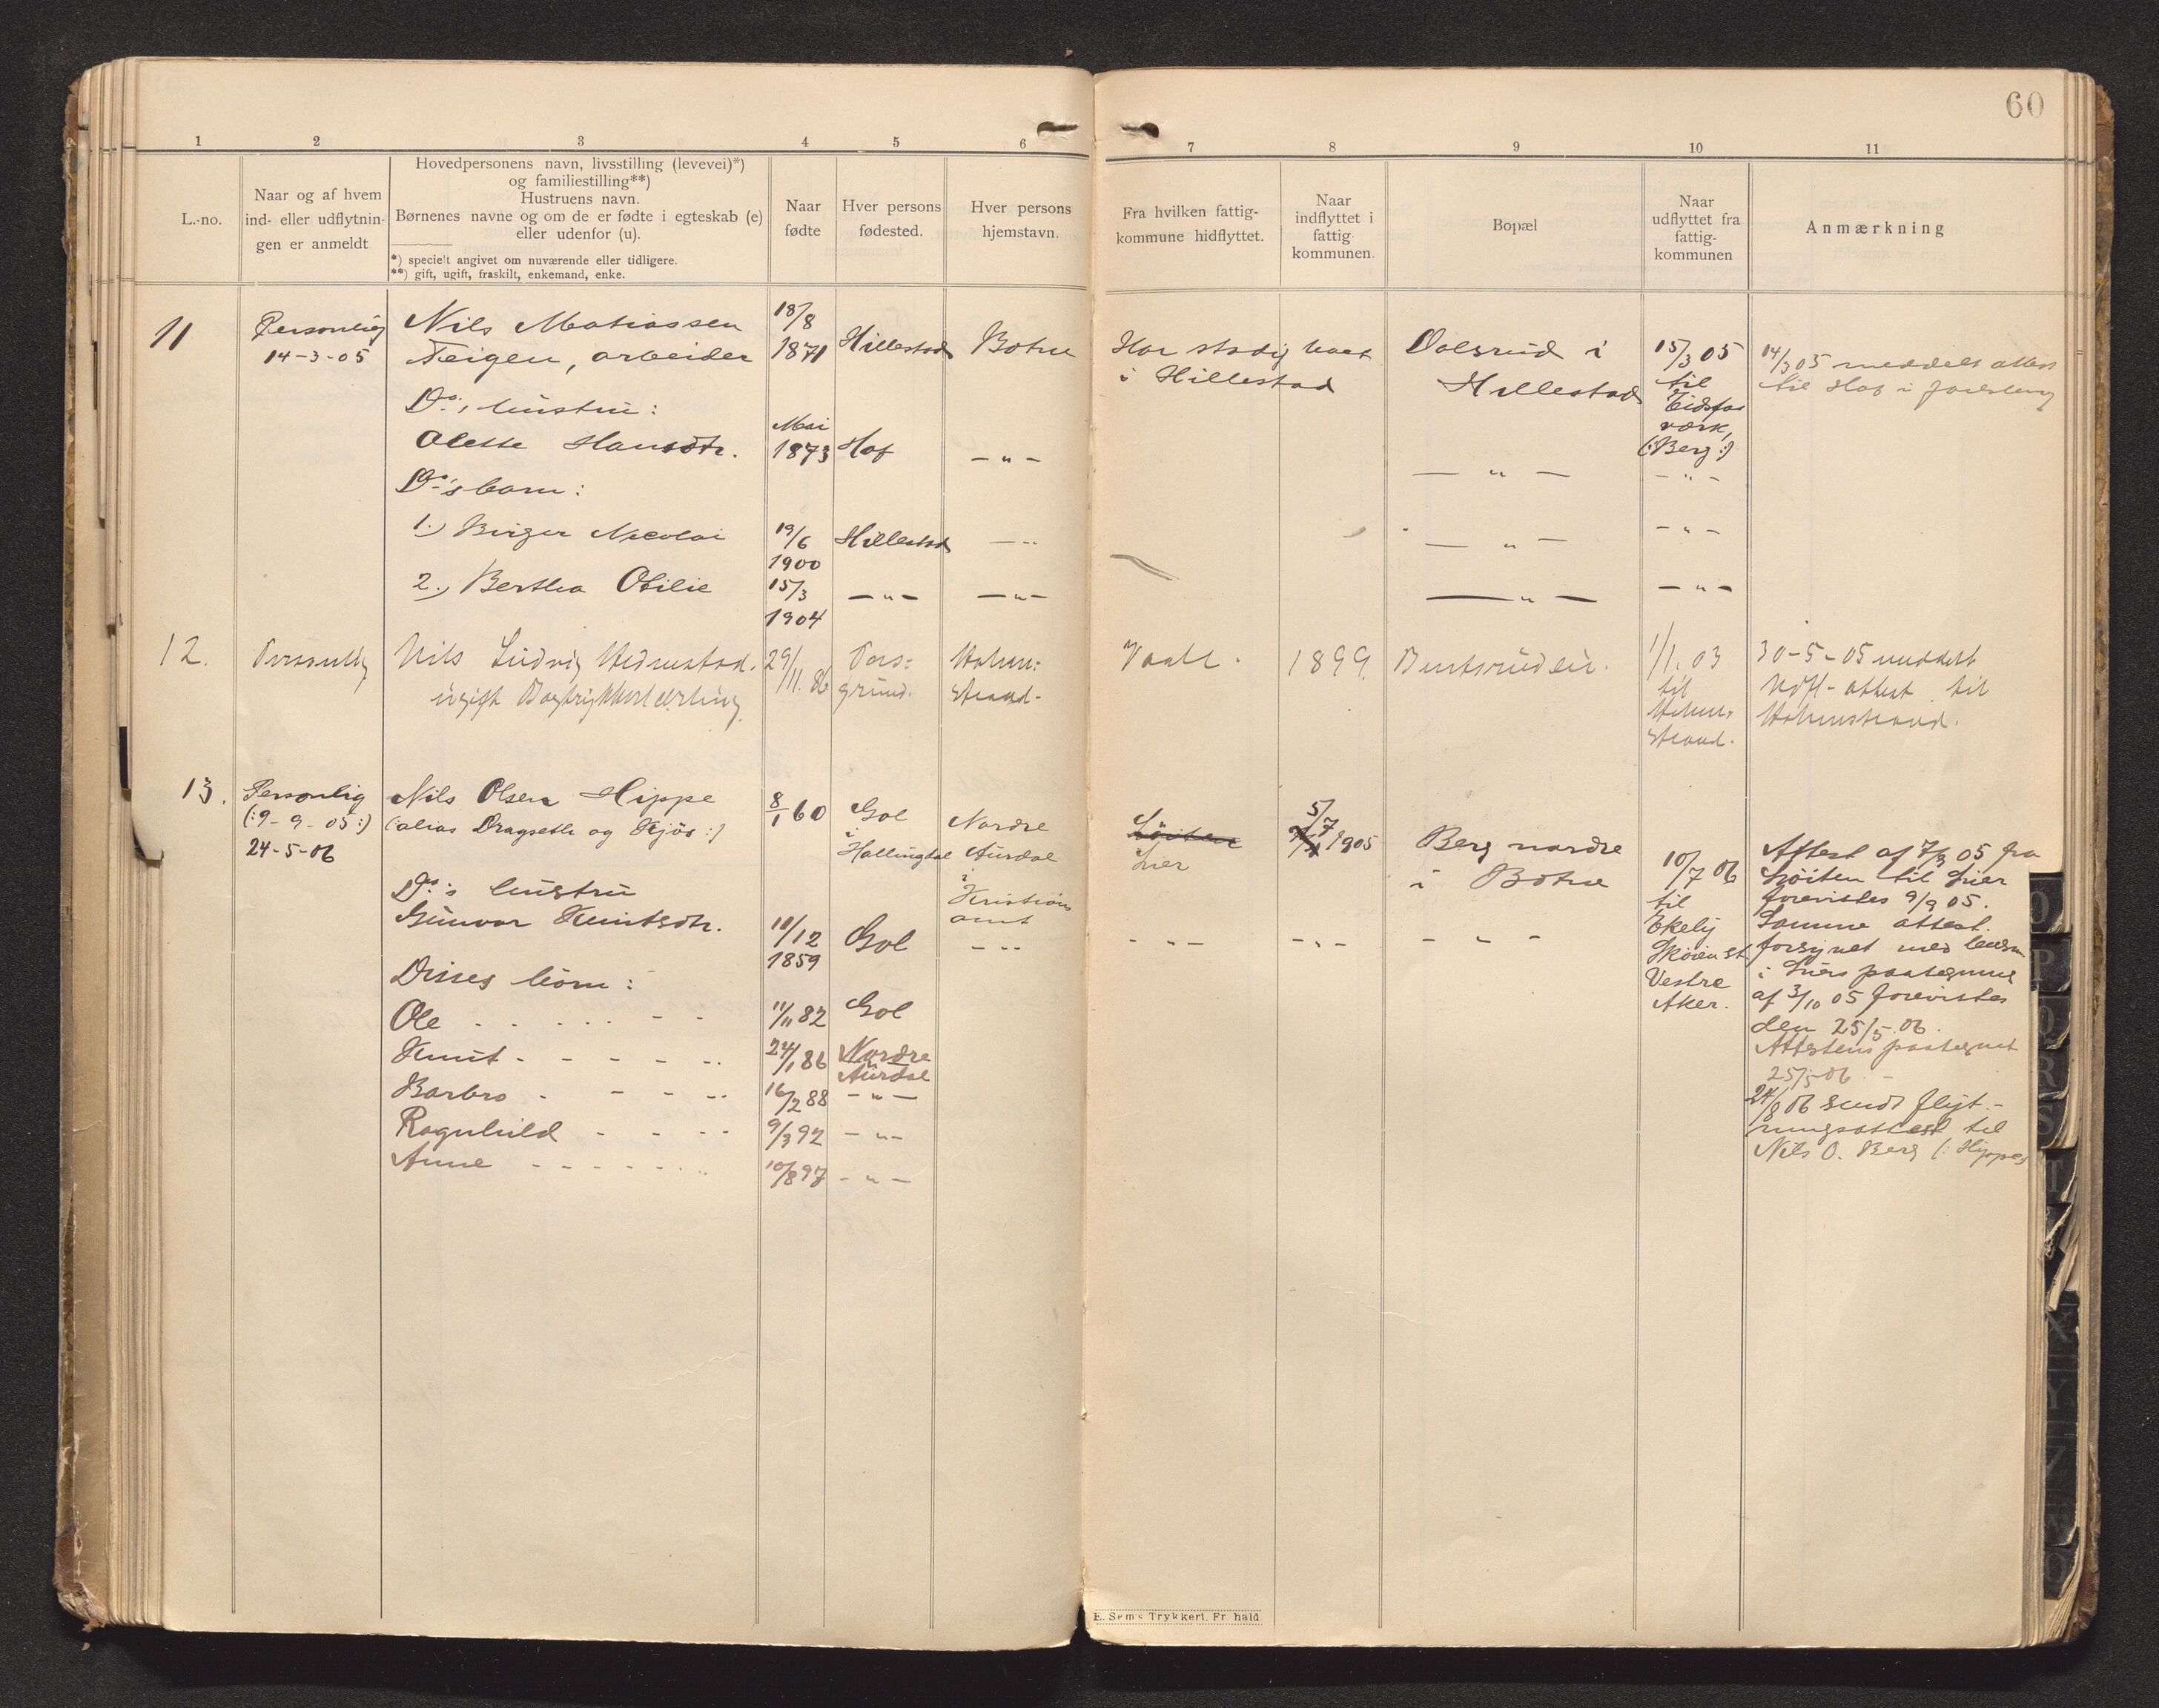 60
1 2 3 4 5 6 7 8 9 10 11
L.-no.
Naar og af hvem
ind- eller udflytnin-
gen er anmeldt
Hovedpersonens navn, livsstilling (levevei)*)
og familiestilling**)
Hustruens navn.
Børnenes navne og om de er fødte i egteskab (e)
eller udenfor (u).
*) specielt angivet om nuværende eller tidligere.
**) gift, ugift, fraskilt, enkemand, enke.
Naar
fødte
Hver persons
fødested.
Hver persons
hjemstavn.
Fra hvilken fattig-
kommune hidflyttet.
Naar
indflyttet i
fattig-
kommunen.
Bopæl
Naar
udflyttet fra
fattig-
kommunen
Anmærkning
11
Personlig
14-3-05
Nils Matiassen
Teigen, arbeider
18/8
1871
Hillestad
Botne
Har stadig boet
i Hillestad
Dalsrud i
Hillestad
15/3 05
til
Eidsfos
værk,
(:Berg:)
14/3 05 meddelt attest
til Hof i Jarlsberg
Do., hustru:
Olette Hansdtr.
Mai
1873
Hof
— " —
— " —
— " —
Do.'s barn:
1.) Birger Nicolai
19/6
1900
Hillestad
— " —
— " —
— " —
2.) Bertha Otilie
15/3
1904
— " —
— " —
— " —
— " —
12.
Personlig
Nils Ludvig Hedenstad.
ugift Bogtrykkerlærling
29/11. 86
Pors=
grund.
Holm=
strand.
Vaale.
1899.
Bentsrudeie.
1/1. 03
til
Holm=
strand.
30-5-05 meddelt
Udfl-attest til
Holmestrand.
13.
Personlig
(:9-9-05:)
24-5-06
Nils Olsen Hippe
(:alias Dragseth og Kjös:)
8/1 60
Gol
i
Hallingdal
Nordre
Aurdal
i
Kristians
amt
Löiten
Lier
5/7
1905
Berg nordre
i Botne
10/7 06
til
Ekely
Skøien st.
Vestre
Aker.
Attest af 7/3 05 fra
Löiten til Lier
forevistes 9/9 05.
Samme attest.
forsynet med lensm
i Liers paategning
af 3/10 05 forevistes
den 25/5-06.
Attesten paategnet
25/5-06 -
24/8 06 sendt flyt-
ningsattest til
Nils O. Berg (: Hippe:)
Do.'s hustru
Gunvor Knutsdtr.
11/12
1859
Gol
— " —
- " -
- " -
- " -
Disses börn:
Ole
11/11 82
Gol
Knut
24/1 86
Nordre
Aurdal
Barbro
16/2 88
- " -
Ragnhild
9/3 92
- " -
Anne
10/8 97
- " -
E. Sem's Trykkeri, Fr. hald
O
P
Q
R
S
T
X
Y